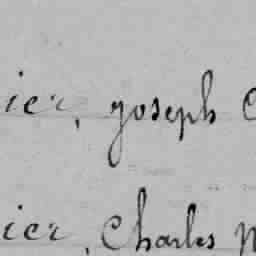 ier, Joseph C
ier, Charles M